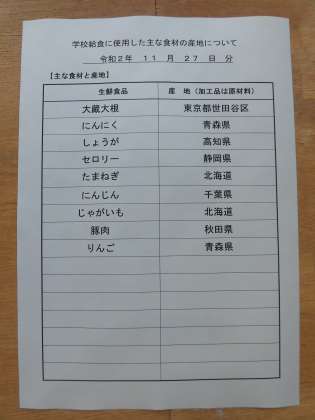 学校給食に使用した主な食材の産地について
令和2年 11 月 27 日 分
【主な食材と産地】
生鮮食品 産 地（加工品は原材料）
大蔵大根 東京都世田谷区
にんにく 青森県
しょうが 高知県
セロリー 静岡県
たまねぎ 北海道
にんじん 千葉県
じゃがいも 北海道
豚肉 秋田県
りんご 青森県